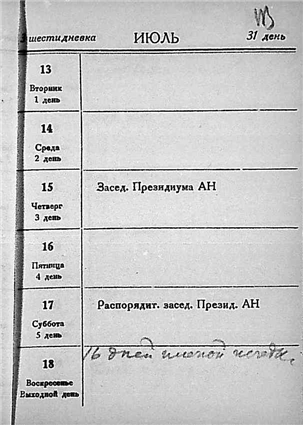 3 шестидневка ИЮЛЬ 31 день
13
Вторник
1 день
14
Среда
2 день
15 Засед. Президиума АН
Четверг
3 день
16
Пятница
4 день
17 Распорядит. засед. Презид. АН
Суббота
5 день
16 дней
18
Воскресенье
Выходной день